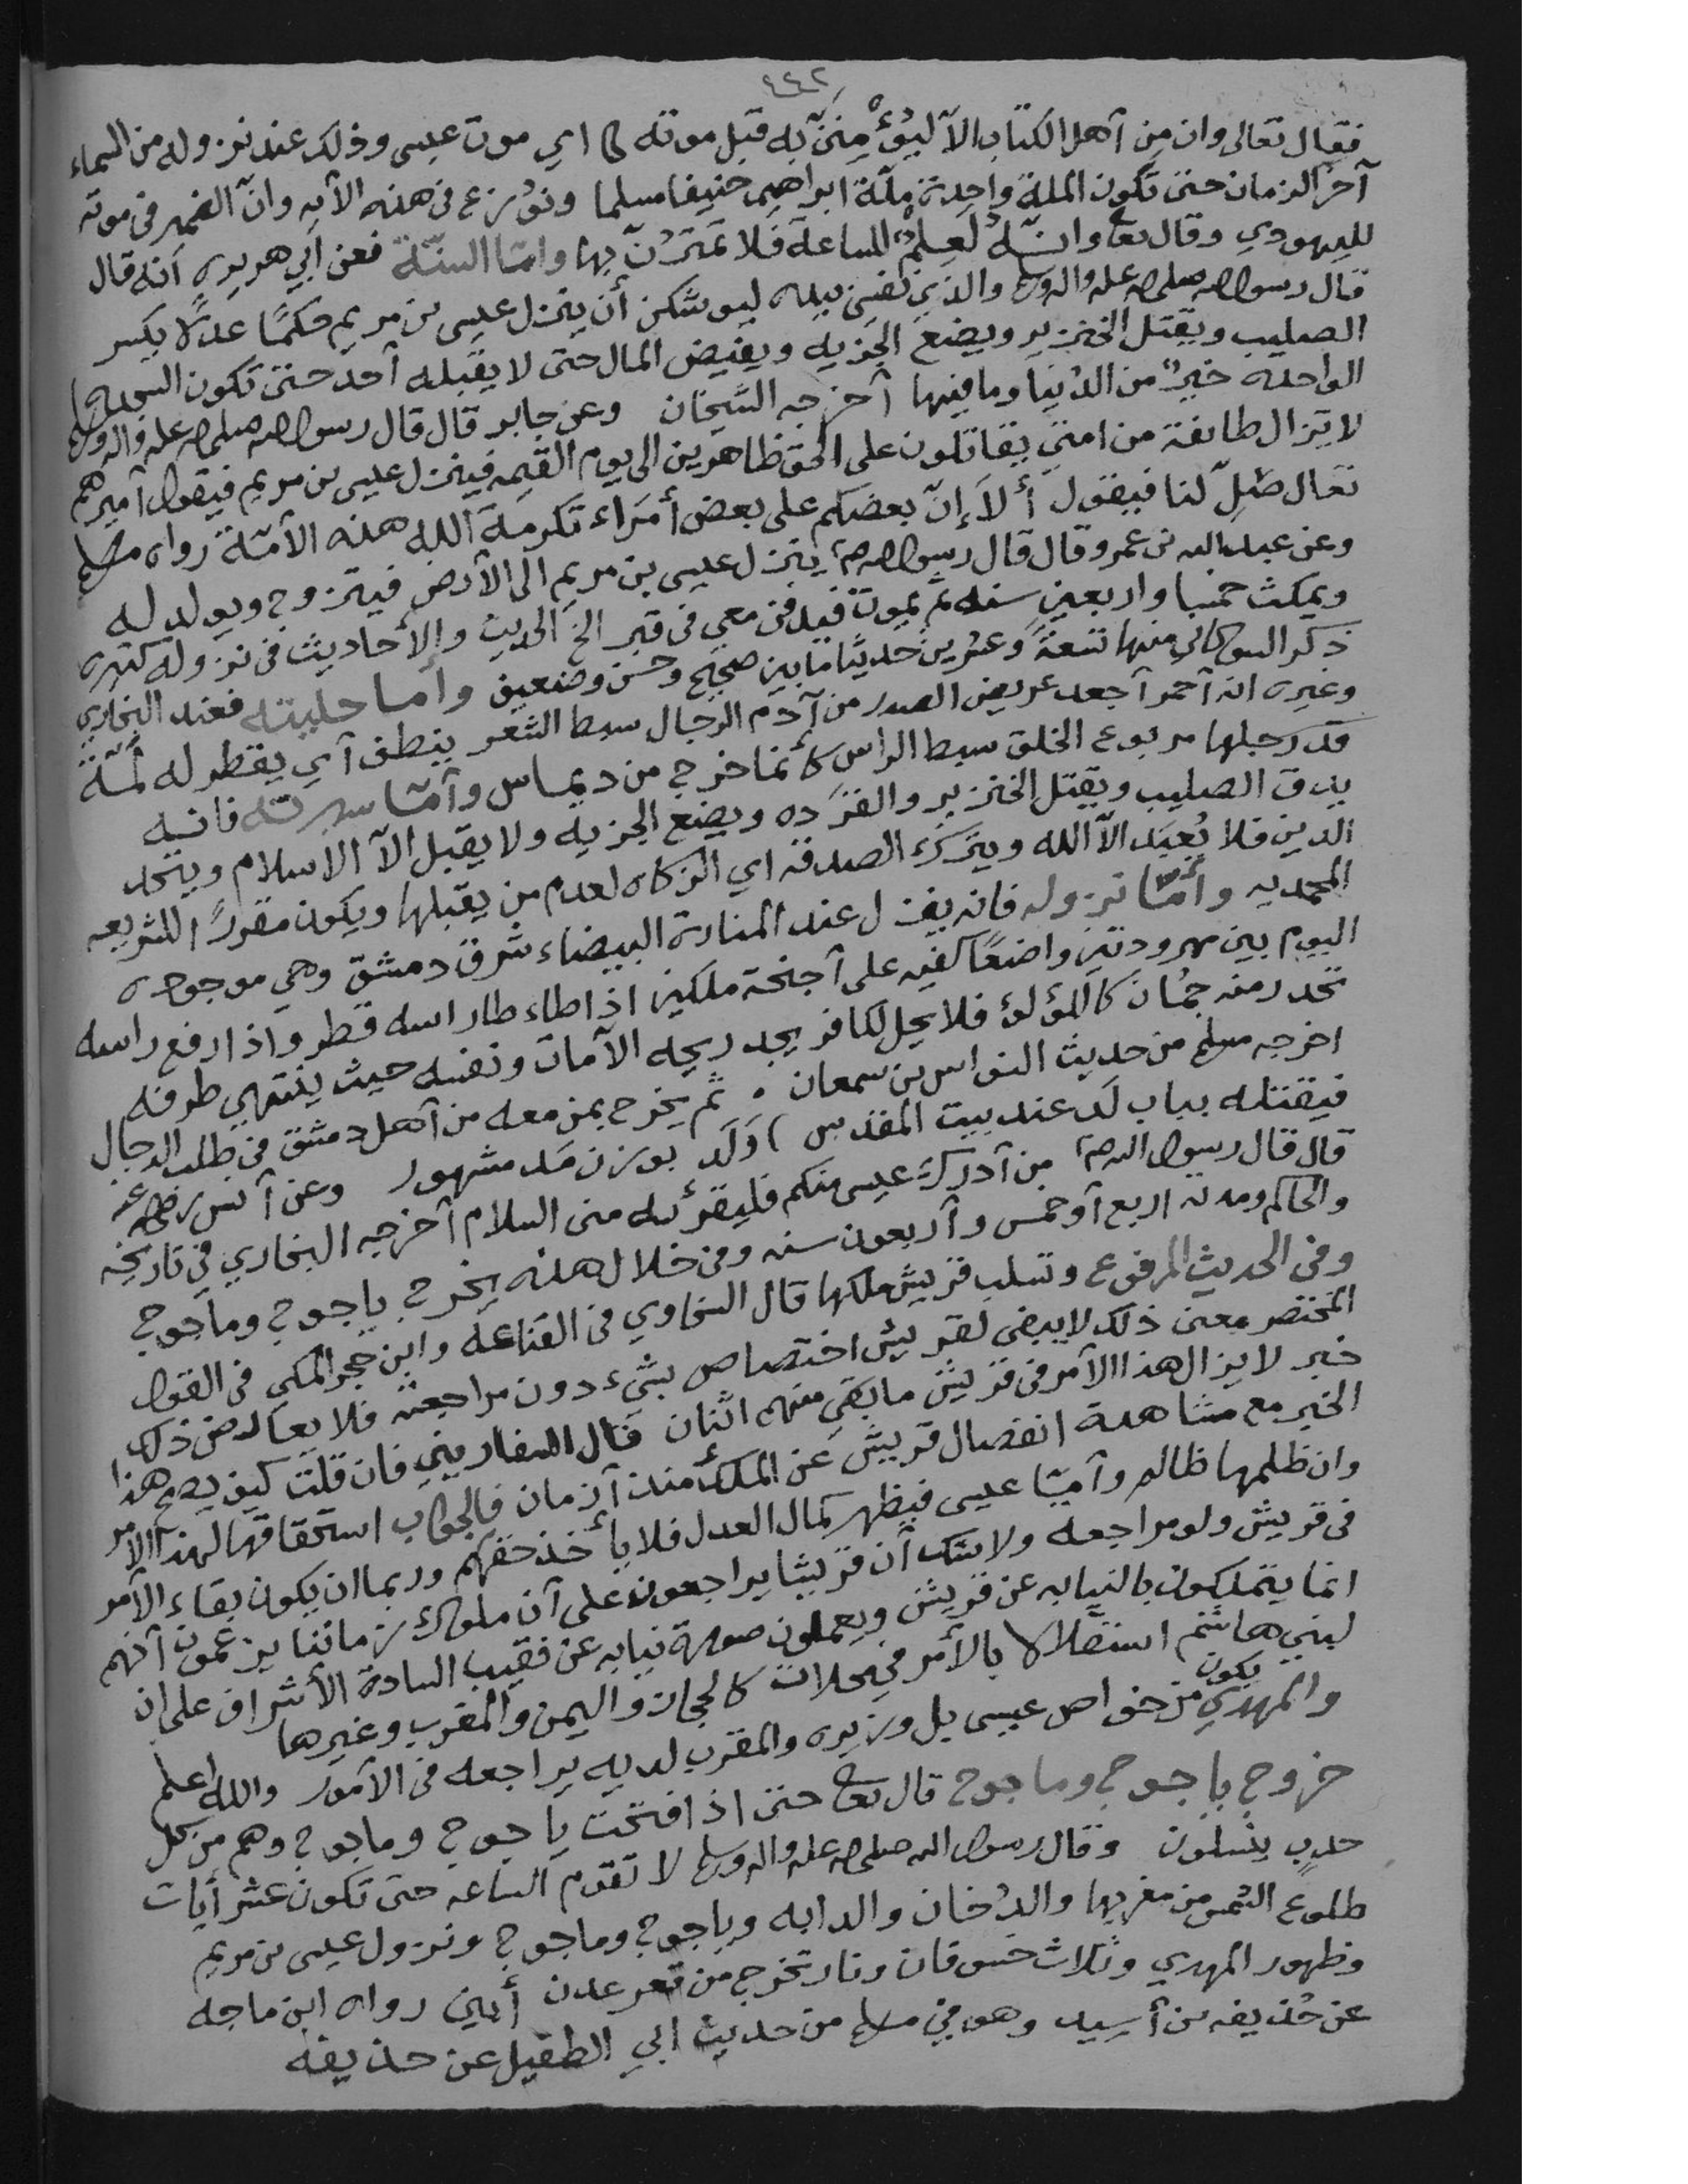 ٤٤٢
فقال تعالى وان من أهل الكتاب الا ليؤمنن به قبل موته اي موت عيسى وذلك عند نزوله من السماء
آخر الزمان حتى تكون الملة واحدة ملة ابراهيم حنيفا مسلما ونوزع في هذه الآيه وانّ الضمير في موته
لليهودي وقال تعا وانه لعلم للساعة فلا تمترنّ بها وامّا السنّة فعن أبي هريره أنه قال
قال رسول الله صلى الله عليه واله وسلم والذي نفسي بيده ليوشكن أن ينزل عيسى بن مريم حكمًا عدلًا يكسر
الصليب ويقتل الخنزير ويضع الجزيه ويفيض المال حتى لا يقبله أحد حتى تكون السجده
الواحده خيرٌ من الدُنيا وما فيها أخرجه الشيخان وعن جابر قال قال رسول الله صلى الله عليه واله وسلم
لا تزال طائفة من امتي يقاتلون على الحق ظاهرين الى يوم القيمه فينزل عيسى بن مريم فيقول أميرهم
تعال صَلِّ لنا فيقول ألا إنّ بعضكم على بعض أمراء تكرمة الله هذه الأمّة رواه مسلم
وعن عبدالله بن عمرو قال قال رسول الله صم ينزل عيسى بن مريم الى الأرض فيتزوج ويولد له
ويمكث خمسا واربعين سنه ثم يموت فيدفن معي في قبر الخ الحديث والأحاديث في نزوله كثيره
ذكر الشوكاني منها تسعةً وعشرين حديثًا ما بين صحيح وحسن وضعيف وأما حليته فعند البخاري
وغيره انه أحمر أجعد عريض الصدر من آدم الرجال سبط الشعر ينطف أي يقطر له لمّة
قد رجلها مربوع الخلق سبط الراس كأنما خرج من ديماس وأمّا سيرته فانه
يدق الصليب ويقتل الخنزير والقرده ويضع الجزيه ولا يقبل الّا الاسلام ويتحد
الدين فلا يُعبَد الّا الله ويترك الصدقه اي الزكاه لعدم من يقبلها ويكون مقررًا للشريعه
المحمديه وأمّا نزوله فانه ينزل عند المنارة البيضاء شرق دمشق وهي موجوده
اليوم بين مهرودتين واضعًا كفيه على أجنحة ملكين اذا طاطا راسه قطر واذا رفع راسه
تحدر منه جُمان كاللؤلؤ فلا يحل لكافر يجد ريحه الا مات ونفسه حيث ينتهي طرفه
اخرجه مسلم من حديث النواس بن سمعان . ثم يخرج بمن معه من أهل دمشق في طلب الدجال
فيقتله بباب لد عند بيت المقدس ) وَلَد بوزن مَد مشهور وعن أنس رضي الله عنه
قال قال رسول الله صم من أدرك عيسى منكم فليقرئه منى السلام أخرجه البخاري في تاريخه
والحاكم ومدته اربع أو خمس وأربعون سنه وفي خلال هذه يخرج ياجوج وماجوج
وفي الحديث المرفوع وتسلب قريش ملكها قال السخاوي في القناعة وابن حجر المكي في القول
المختصر معنى ذلك لا يبقى لقريش اختصاص بشيء دون مراجعته فلا يعارض ذلك
خبر لا يزال هذا الأمر في قريش ما بقي منهم اثنان قال السفاريني فان قلت كيف يصح هذا
الخبر مع مشاهدة انفصال قريش عن الملك منذ أزمان فالجواب استحقاقها لهذا الامر
وان ظلمها ظالم وأمّا عيسى فيظهر كمال العدل فلا يأخذ حقهم وربما ان يكون بقاء الأمر
في قريش ولو مراجعه ولا شك أن قريشا يراجعون على أن ملوك زماننا يزعمون أنهم
انما يتملكون بالنيابه عن قريش ويعملون صورة نيابه عن نقيب السادة الأشراف على ان
لبني هاشم استقلالا بالأمر في محلات كالحجاز واليمن والمغرب وغيرها
والمهدي يكون من خواص عيسى بل وزيره والمقرب لديه يراجعه في الأمور والله اعلم
خروج ياجوج وماجوج قال تعا حتى اذا فتحت ياجوج وماجوج وهم من كل
حدبٍ ينسلون وقال رسول الله صلى الله عليه واله وسلم لا تقوم الساعه حتى تكون عشر أيات
طلوع الشمس من مغربها والدُخان والدابه وياجوج وماجوج ونزول عيسى بن مريم
وظهور المهدي وثلاث خسوفات ونار تخرج من قعر عدن أبين رواه ابن ماجه
عن حُذيفه بن أسيد وهو في مسلم من حديث ابي الطفيل عن حذيفه